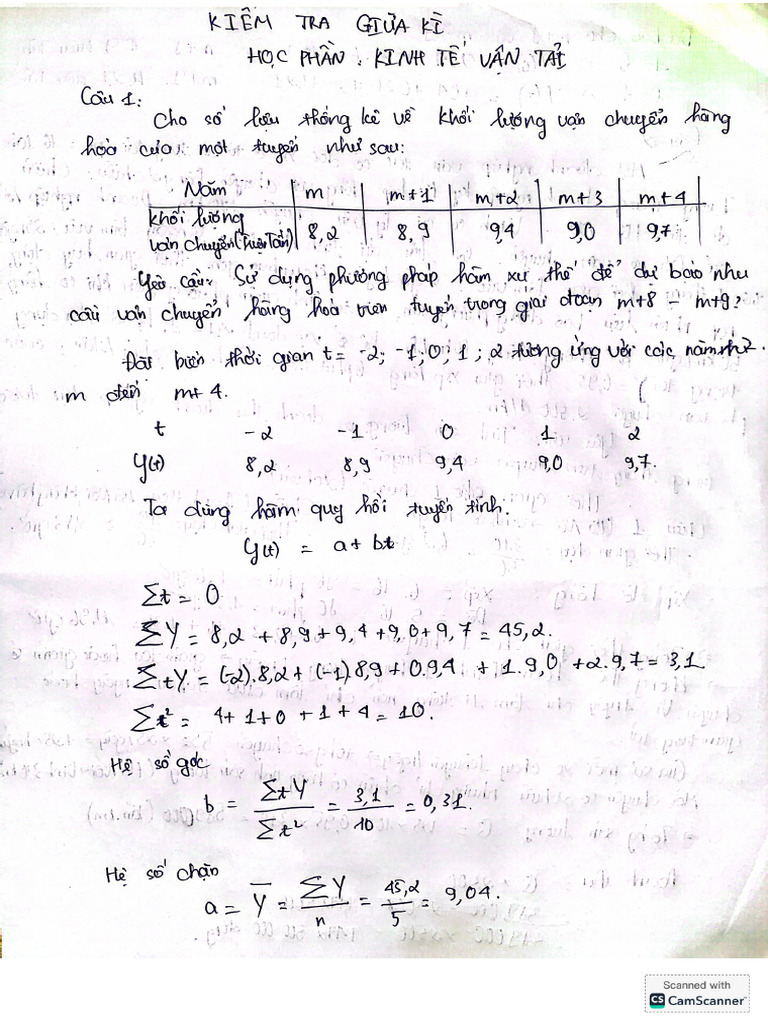 KIỂM TRA GIỮA KÌ
HỌC PHẦN : KINH TẾ VẬN TẢI
Câu 1:
Cho số liệu thống kê về khối lượng vận chuyển hàng
hoá của một tuyến như sau:
Năm | m | m+1 | m+2 | m+3 | m+4
khối lượng vận chuyển (triệu Tấn) | 8,2 | 8,9 | 9,4 | 9,0 | 9,7
Yêu cầu: Sử dụng phương pháp hàm xu thế để dự báo nhu
cầu vận chuyển hàng hoá trên tuyến trong giai đoạn m+8 – m+9?
Đặt biến thời gian t = -2; -1; 0; 1; 2 tương ứng với các năm từ
m đến m+4.
t -2 -1 0 1 2
Y(t) 8,2 8,9 9,4 9,0 9,7.
Ta dùng hàm quy hồi tuyến tính.
Y(t) = a + bt
Σt = 0
ΣY = 8,2 + 8,9 + 9,4 + 9,0 + 9,7 = 45,2.
ΣtY = (-2).8,2 + (-1).8,9 + 0.9,4 + 1.9,0 + 2.9,7 = 3,1
Σt² = 4+1+0+1+4 = 10.
Hệ số góc
b = ΣtY / Σt² = 3,1 / 10 = 0,31.
Hệ số chặn
a = Y̅ = ΣY / n = 45,2 / 5 = 9,04.
Scanned with
CS CamScanner